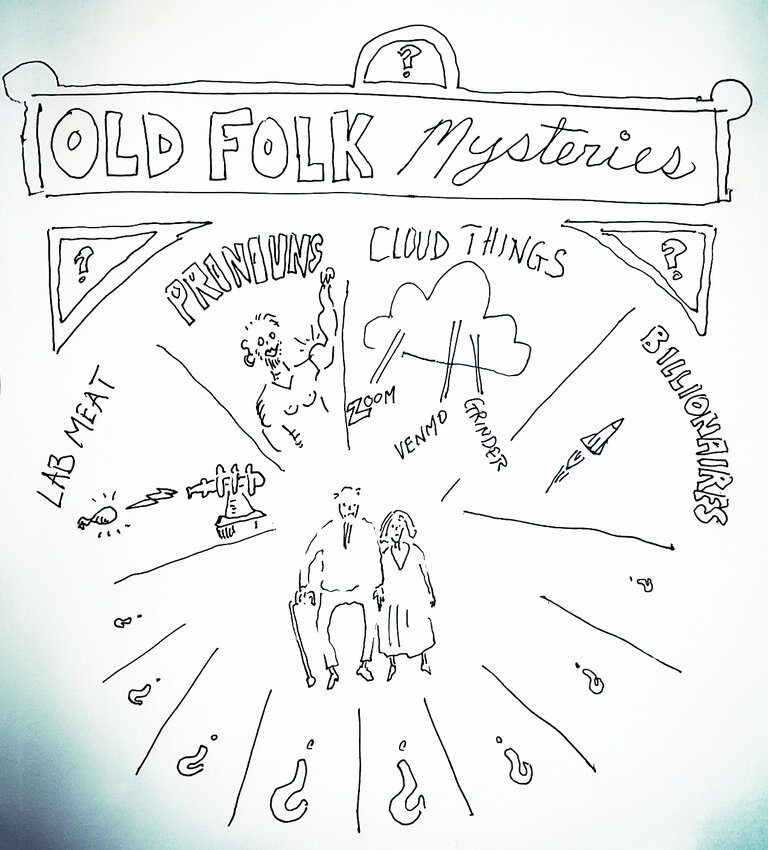 ?
OLD FOLK Mysteries
?
?
PRONOUNS
CLOUD THINGS
BILLIONAIRES
LAB MEAT
ZOOM
VENMO
GRINDER
?
?
?
?
?
?
?
?